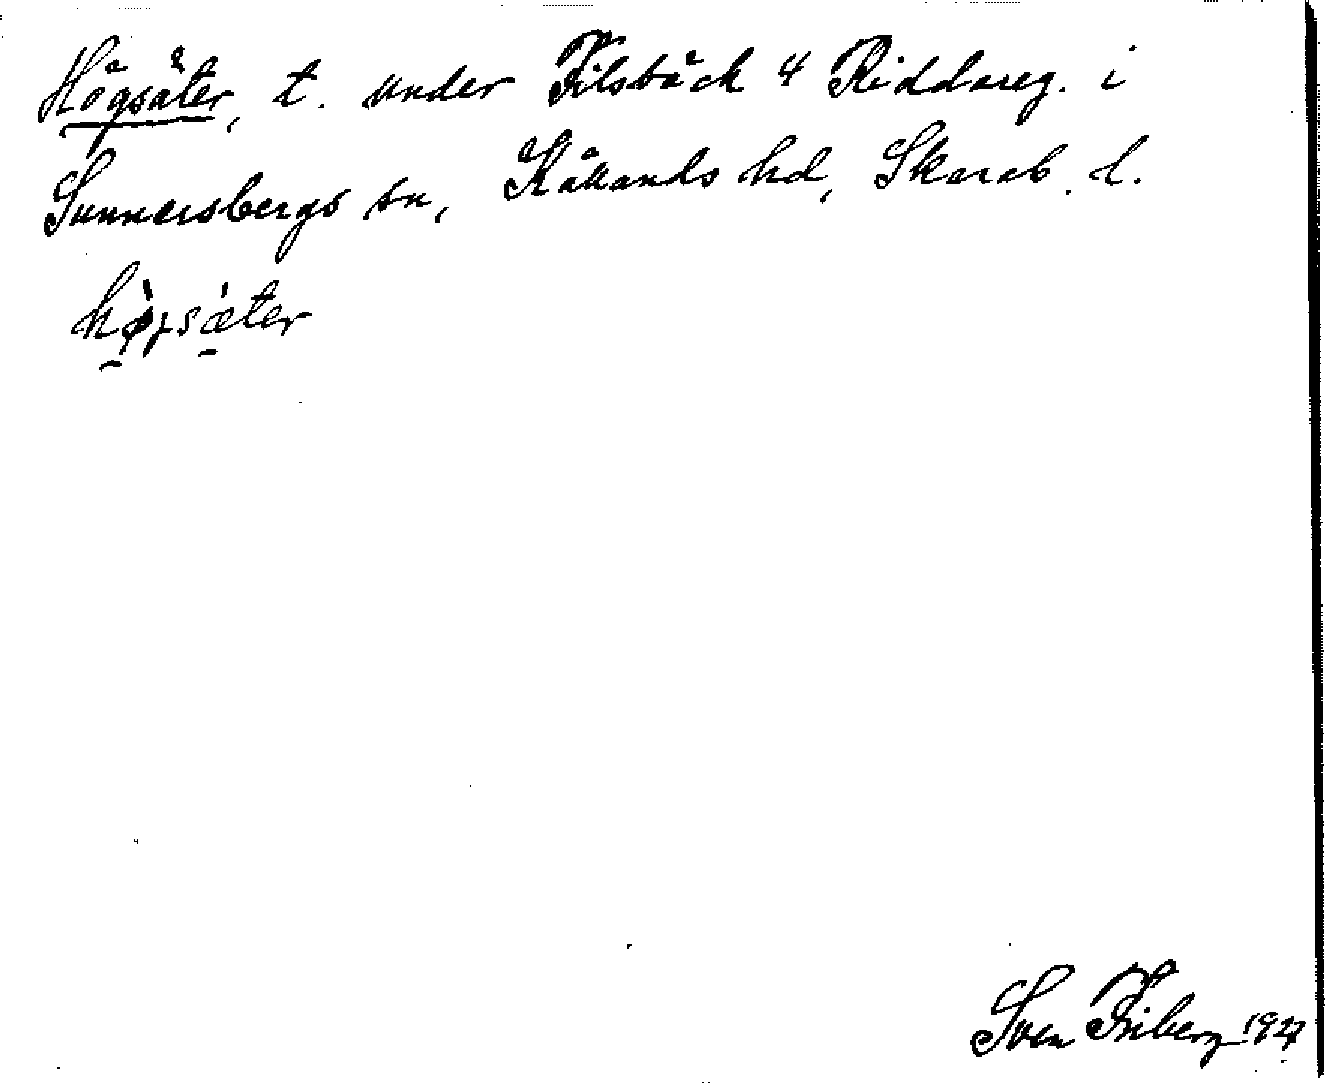 Högsäter, t. under Filsbäck 4 Riddareg. i
Sunnersbergs sn, Kållands hd, Skarab. l.
hø̀gsæ̀ter
Sven Friberg 1927